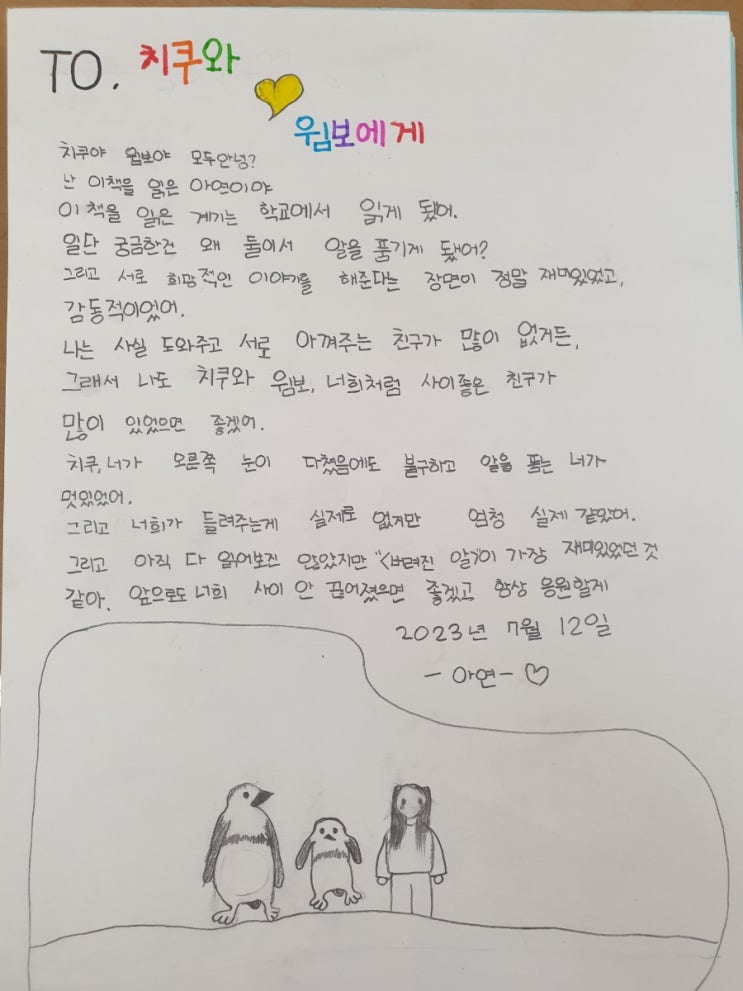 TO. 치쿠와
윔보에게
치쿠야 윔보야 모두안녕?
난 이책을 읽은 아연이야
이 책을 읽은 계기는 학교에서 읽게 됐어.
일단 궁금한건 왜 둘이서 알을 품기게 됐어?
그리고 서로 희망적인 이야기를 해준다는 장면이 정말 재미있었고,
감동적이었어.
나는 사실 도와주고 서로 아껴주는 친구가 많이 없거든,
그래서 나도 치쿠와 윔보, 너희처럼 사이좋은 친구가
많이 있었으면 좋겠어.
치쿠, 너가 오른쪽 눈이 다쳤음에도 불구하고 알을 품는 너가
멋있었어.
그리고 너희가 들려주는게 실제로 없지만 엄청 실제 같았어.
그리고 아직 다 읽어보진 않았지만 "<버려진 알>이 가장 재미있었던 것
같아. 앞으로도 너희 사이 안 끊어졌으면 좋겠고 항상 응원할게
2023년 7월 12일
- 아연 - ♡